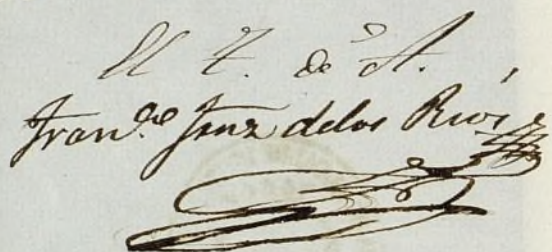 El T. de A.
Fran.co Sanz de los Rios